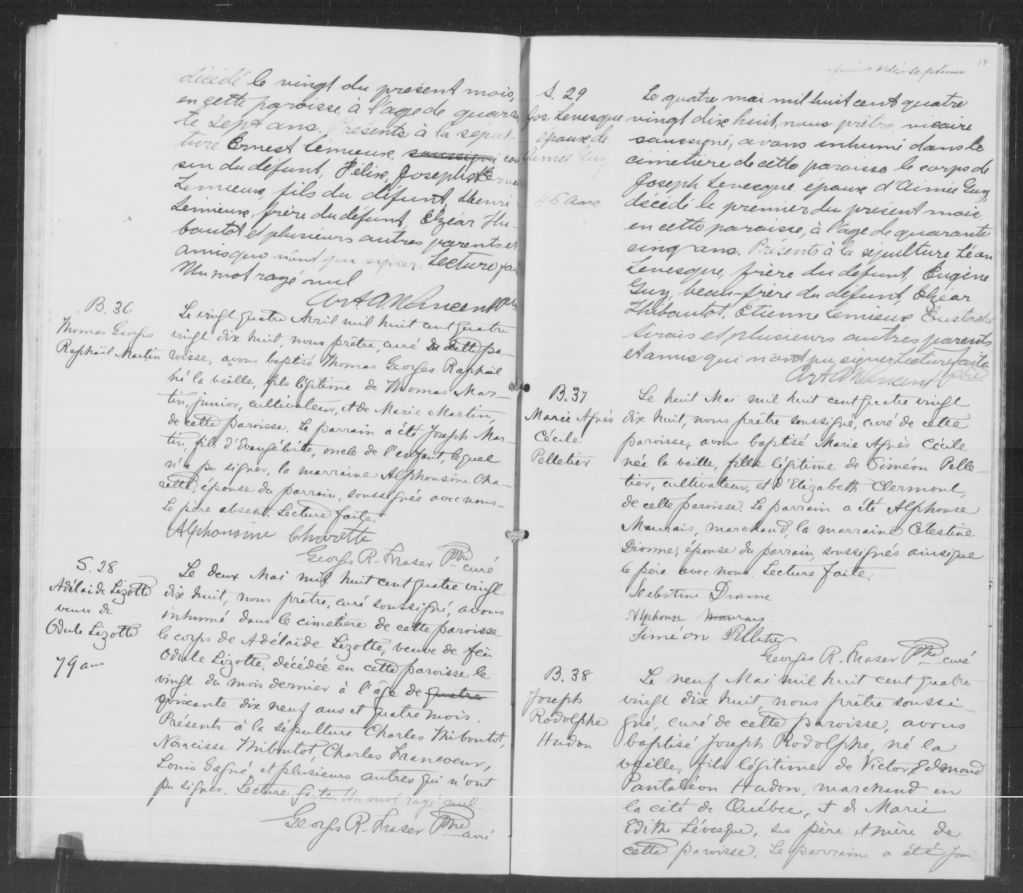 décédé le vingt du présent mois,
en cette paroisse, à l'age de quaran
te sept ans. Présents à la sépul
ture Ernest Lemieux, soussigné cou
sin du défunt, Félix, Joseph
Lemieux, fils du défunt, Henri
Lemieux, frère du défunt, Elzéar Thi
bautot et plusieurs autres parents et
amis qui n'ont pu signer. Lecture faite
Un mot rayé nul
B. 36
Thomas Georges
Raphaël Martin
Le vingt quatre Avril mil huit cent quatre
vingt dix huit, nous prêtre, curé de cette pa-
roisse, avons baptisé Thomas Georges Raphaël
né la veille, fils légitime de Thomas Mar-
tin, junior, cultivateur, et de Marie Martin,
de cette paroisse. Le parrain a été Joseph Mar
tin, fils d'Evangéliste, oncle de l'enfant, lequel
n'a pu signer, la marraine Alphonsine Cha-
rette, épouse du parrain, soussignée avec nous.
Le père absent. Lecture faite.
Alphonsine Charette
Georges R. Fraser Ptre curé
S. 28
Adélaïde Lizotte
veuve de
Odule Lizotte
79 ans
Le deux Mai mil huit cent quatre vingt
dix huit, nous prêtre, curé soussigné, avons
inhumé dans le cimetière de cette paroisse
le corps de Adélaïde Lizotte, veuve de feu
Odule Lizotte, décédée en cette paroisse le
vingt du mois dernier à l'âge de quatre
soixante dix neuf ans et quatre mois.
Présents à la sépulture Charles Thiboutot,
Narcisse Thiboutot, Charles Francoeur,
Louis Gagné, et plusieurs autres qui n'ont
pu signer. Lecture faite. Un mot rayé nul.
Georges R. Fraser Ptre curé
S. 29
Jos Levesque
époux de
Aimée Guy
45 ans
Le quatre mai mil huit cent quatre
vingt dix huit, nous prêtre, vicaire
soussigné, avons inhumé dans le
cimetière de cette paroisse le corps de
Joseph Levesque époux d'Aimée Guy,
décédé le premier du présent mois
en cette paroisse, à l'age de quarante
cinq ans. Présents à la sépulture Léon
Levesque, frère du défunt, Eugène
Guy, beau-frère du défunt, Elzéar
Thibautot, Etienne Lemieux, Eustache
Sirois et plusieurs autres parents
et amis qui n'ont pu signer. Lecture faite
B. 37
Marie Agnès
Cécile
Pelletier
Le huit Mai mil huit cent quatre vingt
dix huit, nous prêtre soussigné, curé de cette
paroisse, avons baptisé Marie Agnès Cécile
née la veille, fille légitime de Siméon Pelle-
tier, cultivateur, et d'Elizabeth Clermont,
de cette paroisse. Le parrain a été Alphonse
Maurais, marchand, la marraine Célestine
Dionne, épouse du parrain, soussignés ainsi que
le père avec nous. Lecture faite.
Célestine Dionne
Alphonse Maurais
Siméon Pelletier
Georges R. Fraser Ptre curé
B. 38
Joseph
Rodolphe
Hudon
Le neuf Mai mil huit cent quatre-
vingt dix huit, nous prêtre soussi-
gné, curé de cette paroisse, avons
baptisé Joseph Rodolphe, né la
veille, fils légitime de Victor Edmond
Pantaléon Hudon, marchand en
la cité de Québec, et de Marie
Edith Lévesque, ses père et mère de
cette paroisse. Le parrain a été